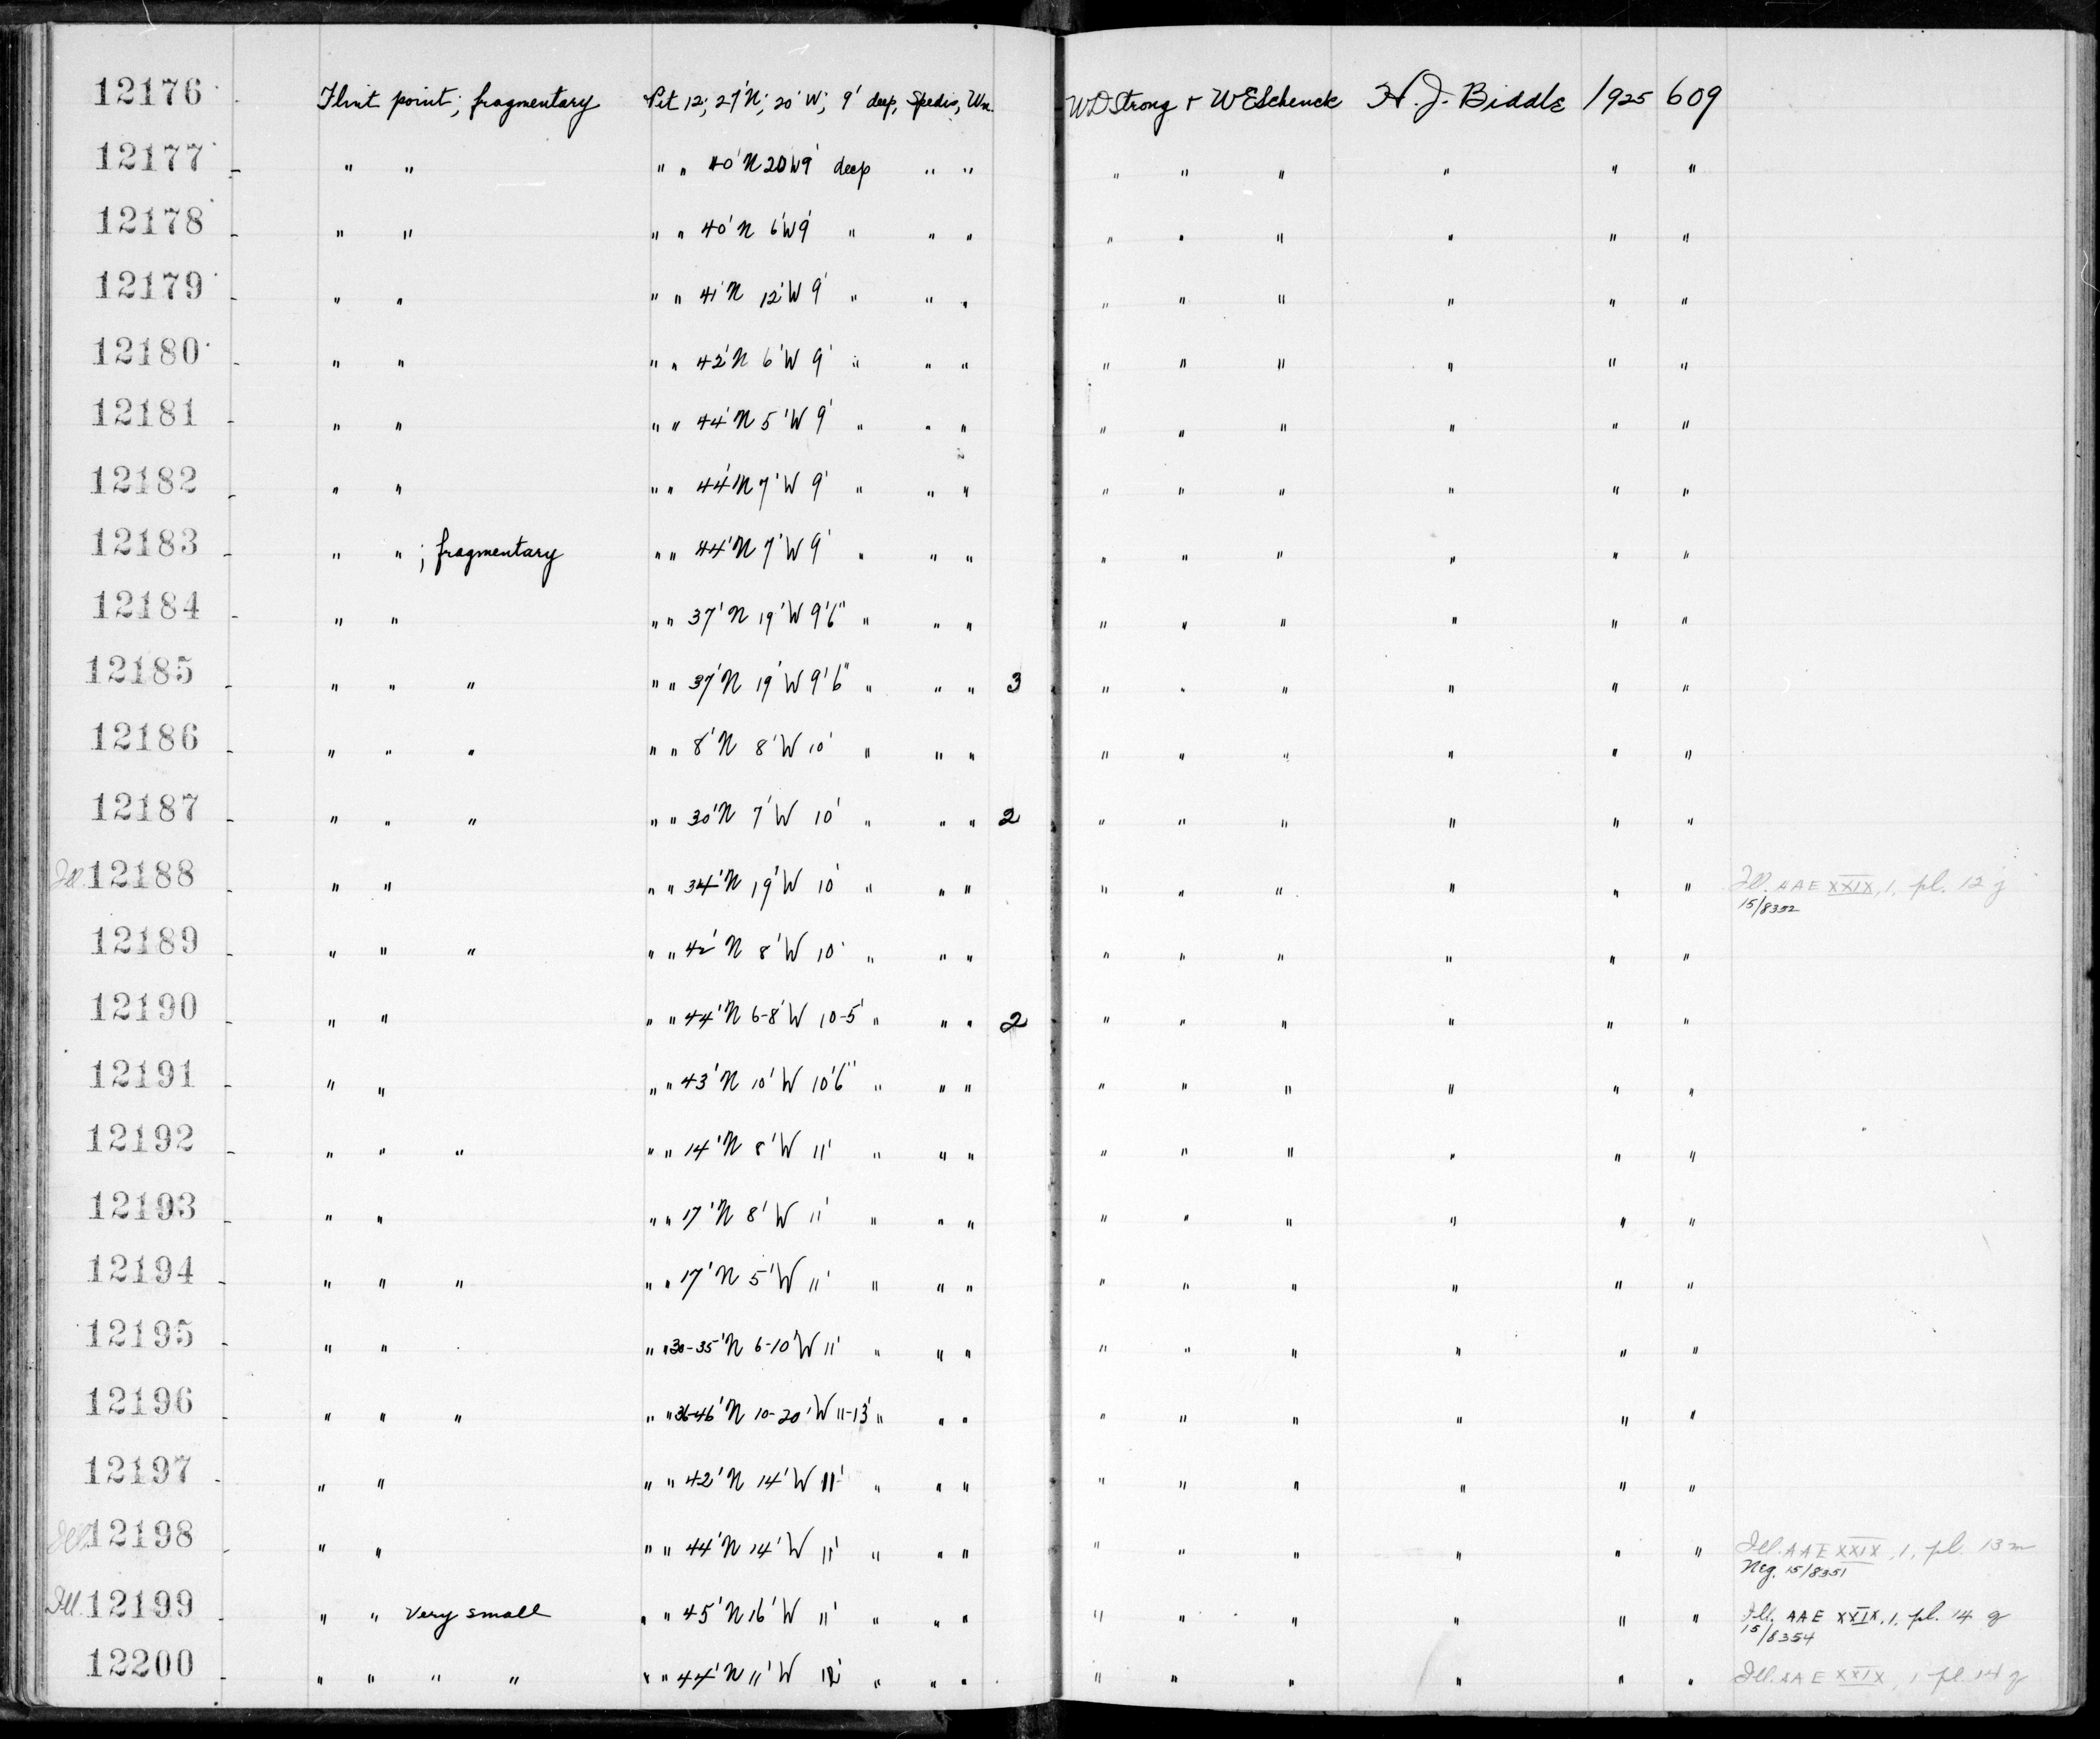 12176 Flint point; fragmentary Pit 12; 27'N; 20'W; 9' deep, Spedis, Wn. WDStrong + WESchenck H. J. Biddle 1925 609
12177 " " " " 40'N 20W9' deep " " " " " " " "
12178 " " " " 40'N 6'W9' " " " " " " " " "
12179 " " " " 41'N 12'W 9' " " " " " " " " "
12180 " " " " 42'N 6'W 9' " " " " " " " " "
12181 " " " " 44'N 5'W 9' " " " " " " " " "
12182 " " " " 44'N 7'W 9' " " " " " " " " "
12183 " " ; fragmentary " " 44'N 7'W 9' " " " " " " " " "
12184 " " " " 37'N 19'W 9'6" " " " " " " " " "
12185 " " " " " 37'N 19'W 9'6" " " " 3 " " " " " "
12186 " " " " " 8'N 8'W 10' " " " " " " " " "
12187 " " " " " 30'N 7'W 10' " " " 2 " " " " " "
Ill. 12188 " " " " 34'N 19'W 10' " " " " " " " " " Ill. AAE XXIX, 1, pl. 12 j
15/8352
12189 " " " " " 42'N 8'W 10' " " " " " " " " "
12190 " " " " 44'N 6-8'W 10-5' " " " 2 " " " " " "
12191 " " " " 43'N 10'W 10'6" " " " " " " " " "
12192 " " " " " 14'N 8'W 11' " " " " " " " " "
12193 " " " " 17'N 8'W 11' " " " " " " " " "
12194 " " " " " 17'N 5'W 11' " " " " " " " " "
12195 " " " " 30-35'N 6-10'W 11' " " " " " " " " "
12196 " " " " " 36-46'N 10-20'W 11-13' " " " " " " " " "
12197 " " " " 42'N 14'W 11' " " " " " " " " "
Ill. 12198 " " " " 44'N 14'W 11' " " " " " " " " " Ill. AAE XXIX, 1, pl. 13 m
Neg. 15/8351
Ill. 12199 " " Very small " " 45'N 16'W 11' " " " " " " " " " Ill. AAE XXIX, 1, pl. 14 g
15/8354
12200 " " " " " " 44'N 11'W 12' " " " " " " " " " Ill. AAE XXIX, 1 pl. 14 g